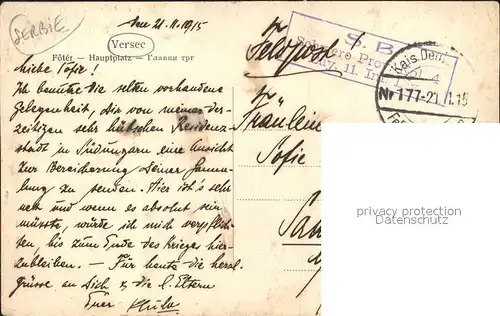 SERBIE
den 21.II.1915
Versec
Főtér — Hauptplatz — Главни трг
Feldpost!
S. B.
Schwere Pro
11. In
Kais. Deu
Nr 177-21 1.15
Liebe Sofie!
Ich benütze die selten vorhandene
Gelegenheit, Dir von meiner der-
zeitigen sehr hübschen Residenz-
stadt in Südungarn eine Ansicht
zur Bereicherung Deiner Samm-
lung zu senden. Hier ist's sehr
nett und wenn es absolut sein
müsste, würde ich mich verpflich-
ten, bis zum Ende des Kriegs hier-
zubleiben. — Für heute die herzl.
Grüsse an Dich & die l. Eltern
Euer
Fräulein
Sofie
privacy protection
Datenschutz